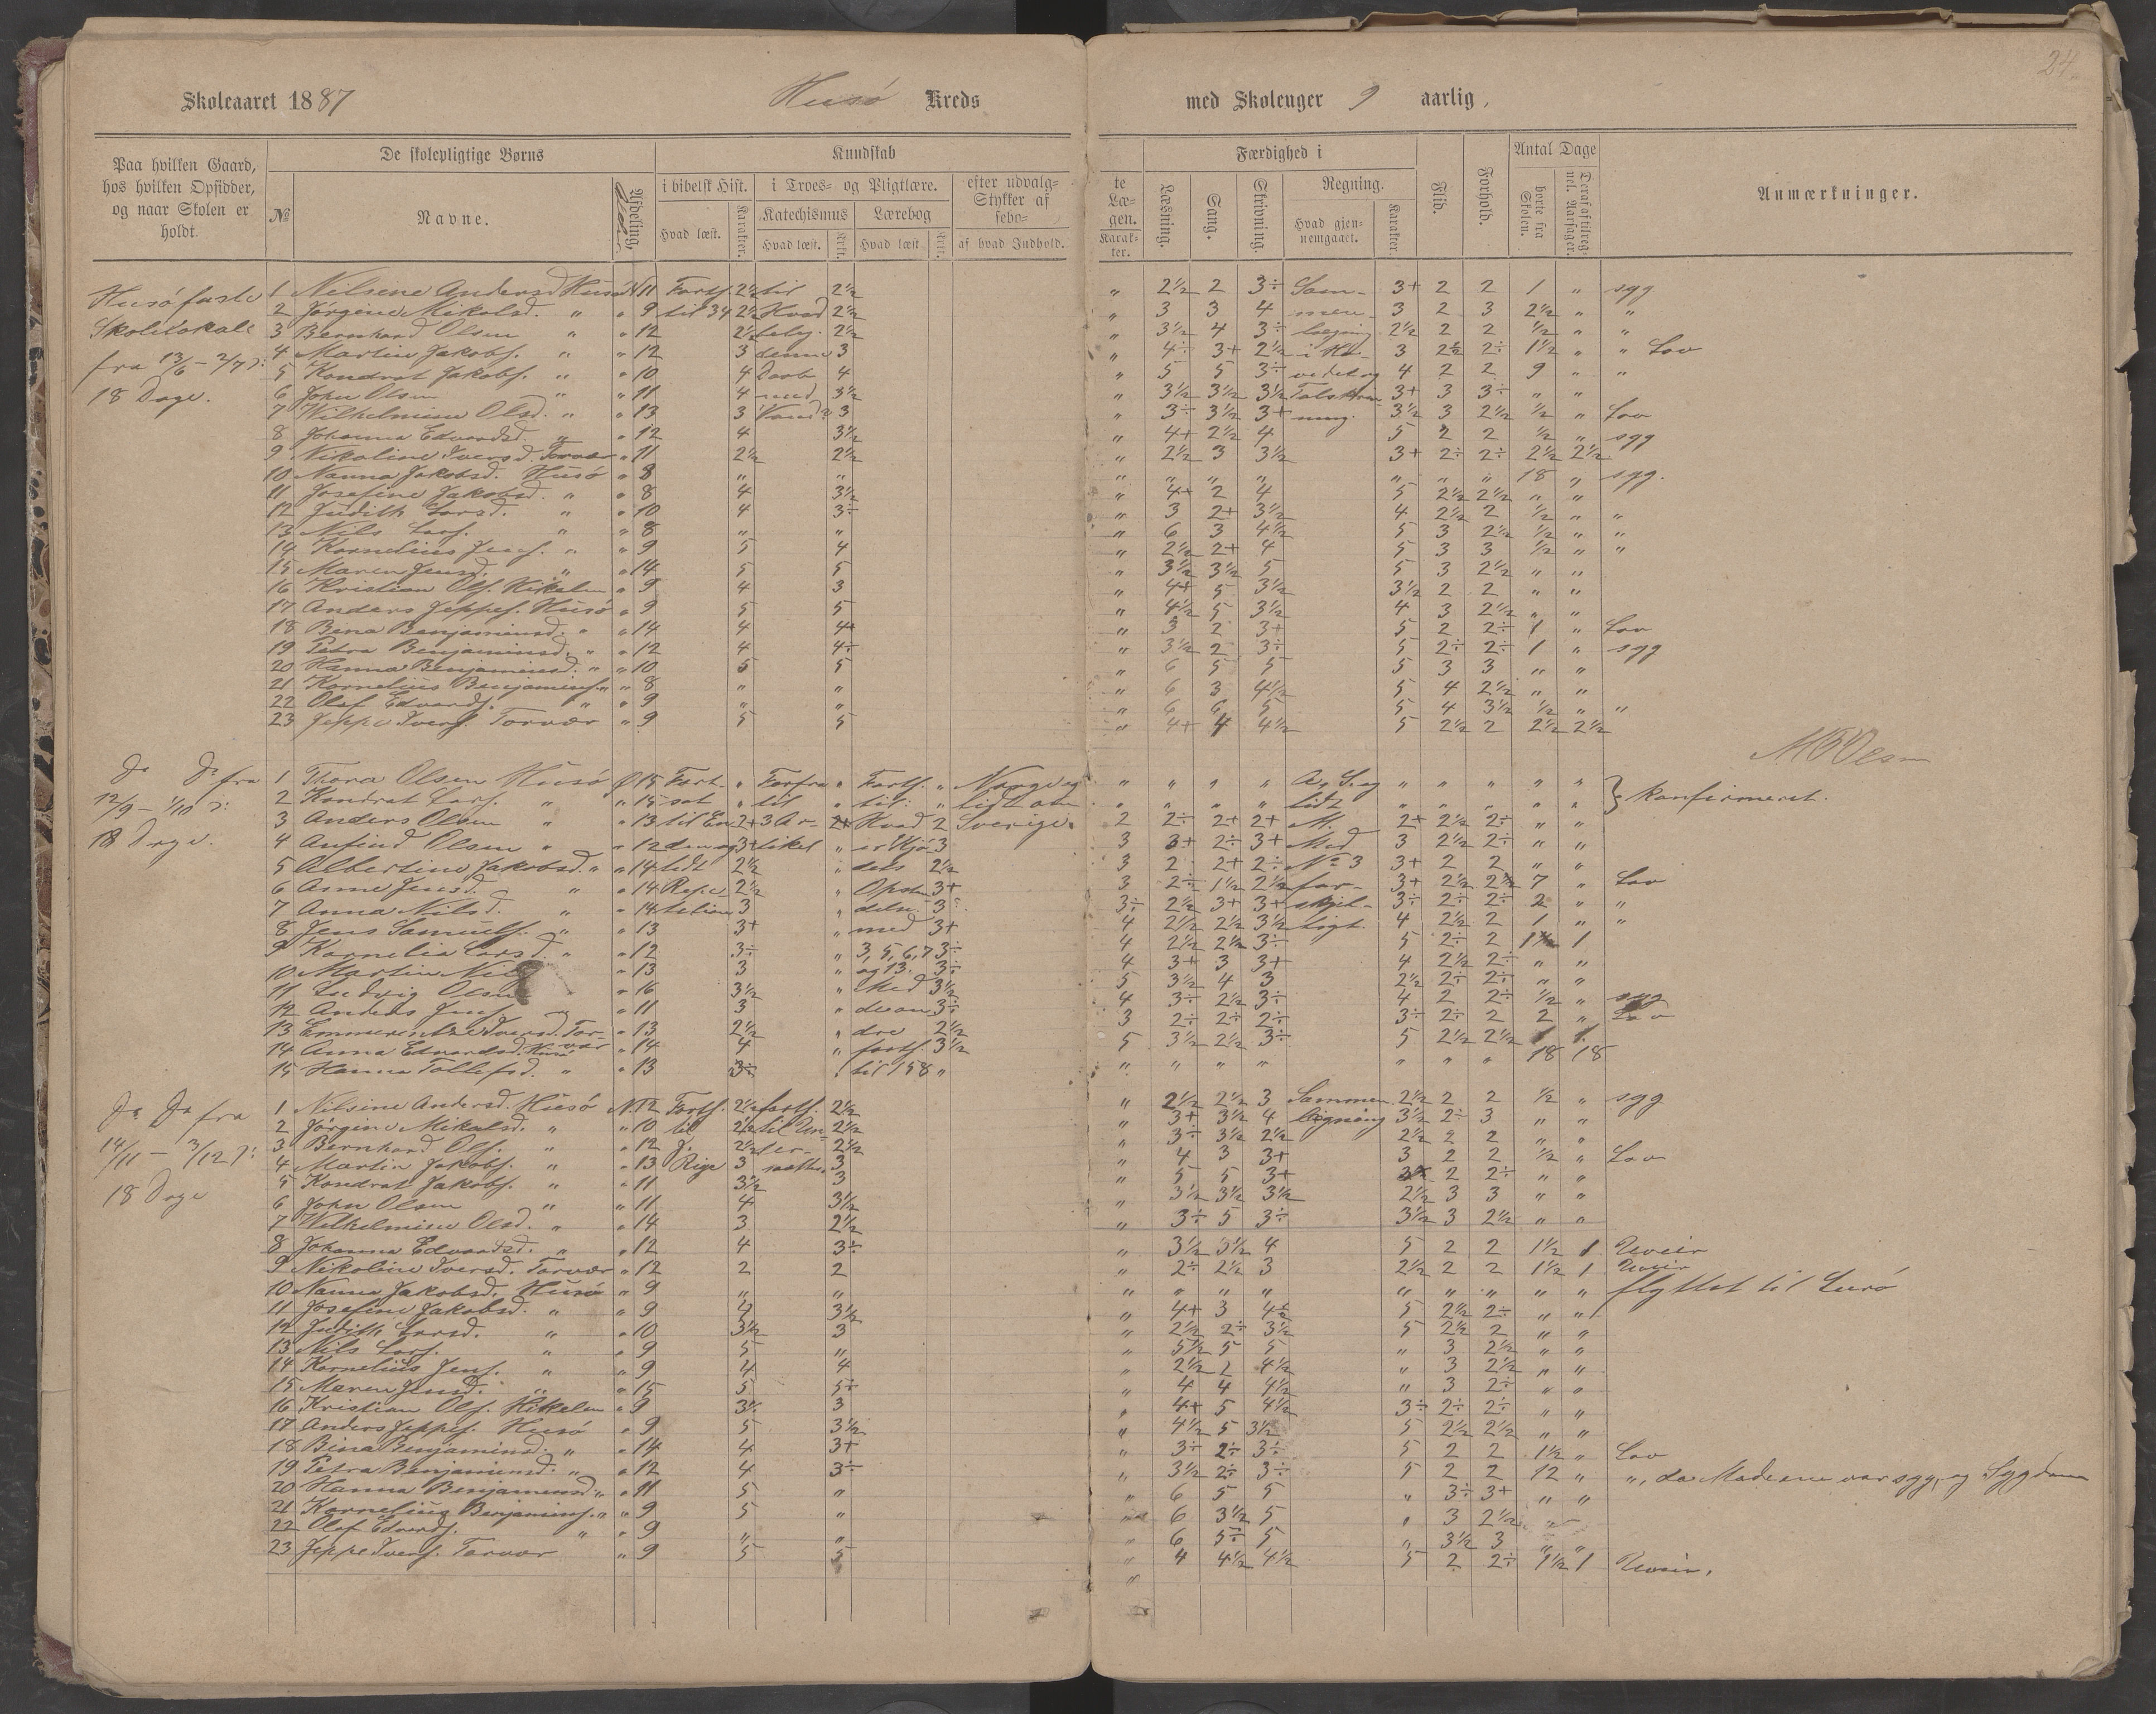 24.
Skoleaaret 1887 Husö Kreds med Skoleuger 9 aarlig,
Paa hvilken Gaard, hos hvilken Opsidder, og naar Skolen er holdt.
De skolepligtige Børns
№ Navne. Afdeling. Alder
Kundskab
i bibelsk Hist. i Troes- og Pligtlære. efter udvalg-te Læ-
Stykker af gen.
Katechismus Lærebog
Hvad læst. Karakter. Hvad læst. Hvad læst af hvad Indhold. Karak-ter.
Færdighed i
Læsning. Sang. Skrivning. Regning.
Hvad gjen-nemgaaet. Karakter.
Flid. Forhold.
Antal Dage
borte fra Skolen.
Anmærkninger.
Husö faste
Skolelokale
fra 13/6 - 2/7 :
18 Dage.
1 Nilsene Andersd Husö N 11 Forts. 2½ til 2½ " 2½ 2 3÷ Sam- 3+ 2 2 1 " syg
2 Jørgine Mikalsd. " " 9 til 34 2½ Hvad 2½ " 3 3 4 men- 3 2 3 2½ " "
3 Bernhard Olsen " " 12 2½ bety. 2½ " 3½ 4 3÷ 2½ 2 2 ½ " "
4 Martin Jakobs. " " 12 3 denne 3 " 4÷ 3+ 2½ i Ho- 3 2½ 2÷ 1½ " " Lov
5 Kondrat Jakobs. " " 10 4 Daab 4 " 5 5 3÷ vedet og 4 2 2 9 " "
6 John Olsen " " 11 4 med 3½ " 3½ 3½ 3½ 3+ 3 3÷ " "
7 Wilhelmine Olsd. " " 13 3 Vand? 3 " 3÷ 3½ 3+ ning. 3½ 3 2½ ½ " Lov
8 Johanna Edvardsd. " " 12 4 3½ " 4+ 2½ 4 5 2 2 ½ " syg
9 Nikoline Iversd. Torvær " 11 2½ 2½ " 2½ 3 3½ 3+ 2÷ 2÷ 2½ 2½
10 Nanna Jakobsd. Husö " 8 " " " " " " " " " 18 " syg.
11 Josefine Jakobsd. " " 8 4 3½ " 4+ 2 4 5 2½ 2½ " "
12 Judith Larsd. " " 10 4 3÷ " 3 2+ 3½ 4 2½ 2 ½ " "
13 Nils Lars. " " 8 " " " 6 3 4½ 5 3 2½ ½ " "
14 Kornelius Jens. " " 9 5 4 " 2½ 2+ 4 5 3 3 ½ " "
15 Maren Jensd. " " 14 5 5 " 3½ 3½ 5 5 3 2½ " "
16 Kristian Ols. Hikelen " 9 4 3 " 4+ 5 3½ 3½ 2 2 " "
17 Anders Jeppes. Husö " 9 5 5 " 4½ 5 3½ 4 3 2½ " "
18 Bina Benjaminsd. " " 14 4 4+ " 3 2 3+ 5 2 2÷ 1 " Lov
19 Petra Benjaminsd. " " 12 4 4÷ " 3½ 2 3÷ 5 2÷ 2÷ 1 " syg
20 Hanna Benjaminsd. " " 10 5 5 " 6 5 5 5 3 3 " "
21 Kornelius Benjamins. " " 8 " " " 6 3 4½ 5 4 2½ " "
22 Olaf Edvards. " " 9 " " " 6 6 5 5 4 3½ ½ " "
23 Jeppe Ivers. Torvær " 9 5 5 " 4+ 4 4½ 5 2½ 2 2½ 2½
Do Do fra
12/9 - 1/10 :
18 Dage.
1 Thora Olsen Husö Ø 15 Fort- " Forfra " Forts. " Norge og " " " " " " " " "
2 Kondrat Lars. " " 15 sat " til " til: " lidt om " " " " lidt " " " " " } konfirmeret.
3 Anders Olsen " " 13 til En 2+ 3 Ar- 2+ Hvad 2 Sverige. 2 2÷ 2+ 2+ M. 2+ 2½ 2÷ " "
4 Anfind Olsen " " 12 den og 3+ tikel " 3 3 3+ 2÷ 3+ Med 3 2½ 2÷ " "
5 Albertine Jakobsd. " " 14 lidt 2½ " dets 2½ 3 2 2+ 2÷ № 3 3+ 2 2 " "
6 Anne Jensd. " " 14 Repe- 2½ " Opstan 3+ 3 2÷ 1½ 2½ for- 3+ 2½ 2½ 7 " Lov
7 Anna Nilsd. " " 14 tetion 3 " delse 3÷ 3÷ 2½ 3+ 3+ skjel- 3÷ 2÷ 2÷ 2 " "
8 Jens Samuels. " " 13 3+ " med 3+ 4 2½ 2½ 3½ ligt. 4 2½ 2 1 " "
9 Kornelia Larsd. " " 12 3÷ " 3, 5, 6, 7 3÷ 4 2½ 2½ 3÷ 5 2÷ 2 1½ 1
10 Martin Nils " 13 3 " og 13. 3÷ 4 3+ 3 3+ 4 2½ 2÷ " "
11 Ludvig Olsen " 16 3½ " Med 3½ 5 3½ 4 3 2½ 2÷ 2÷ " "
12 Anders Jens. " " 11 3 " de an 3÷ 4 3÷ 2½ 3÷ 4 2 2÷ ½ " syg
13 Emmerentze Iversd. Tor-vær " 13 2½ " dre 2½ 3 2÷ 2÷ 2÷ 3÷ 2÷ 2 2 " Lov
14 Anna Edvardsd. Husö " 14 4 " forts. 3½ 5 3½ 2½ 3÷ 5 2½ 2½ 1 1
15 Hanna Tollefsd. " " 13 3÷ til 158 " " " " " " " " 18 18
Do Do fra
14/11 - 3/12 :
18 Dage
1 Nilsine Andersd. Husö N. 12 Forts. 2½ forts. 2½ " 2½ 2½ 3 Sammen 2½ 2 2 ½ " syg
2 Jørgine Mikalsd. " " 10 til 2½ til Un- 2½ " 3+ 3½ 4 ligning 3½ 2÷ 3 " "
3 Bernhard Ols. " " 12 J. 2½ der- 2½ " 3÷ 3½ 2½ 2½ 2 2 " "
4 Martin Jakobs. " " 13 Rige 3 3 " 4 3 3+ 3 2 2 ½ " Lov
5 Kondrat Jakobs. " " 11 3½ 3 " 5 5 3+ 2 2÷ " "
6 John Olsen " " 11 4 3½ " 3½ 3½ 3½ 2½ 3 3 " "
7 Wilhelmine Olsd. " " 14 3 2½ " 3÷ 5 3÷ 3½ 3 2½ " "
8 Johanna Edvardsd. " " 12 4 3÷ " 3½ 3½ 4 5 2 2 1½ 1 Uveir
9 Nikoline Iversd. Torvær " 12 2 2 " 2÷ 2½ 3 2½ 2 2 1½ 1 Uveir
10 Nanna Jakobsd. Husö " 9 " " " " " " " " " " " flyttet til Lurö
11 Josefine Jakobsd. " " 9 4 3½ " 4+ 3 4½ 5 2½ 2÷ " "
12 Judith Larsd. " " 10 3½ 3 " 2½ 2÷ 3½ 5 2½ 2 " "
13 Nils Lars. " " 9 5 " " 5½ 5 5 " 3 2½ " "
14 Kornelius Jens. " " 9 4 4 " 2½ 2 4½ " 3 2½ " "
15 Maren Jensd. " " 15 5 5÷ " 4 4 4½ " 3 2÷ " "
16 Kristian Ols. Hikelen " 9 3½ 3 " 4+ 5 4½ 3÷ 2÷ 2÷ " "
17 Anders Jeppes. Husö " 9 5 3½ " 4½ 5 3½ 5 2½ 2½ " "
18 Bina Benjaminsd. " " 14 4 3+ " 3÷ 2÷ 3÷ 5 2 2 1½ " Lov
19 Petra Benjaminsd. " " 12 4 3÷ " 3½ 2÷ 3÷ 5 2 2 12 " ", da Moderen var syg, og Sygdom
20 Hanna Benjaminsd. " " 11 5 " " 6 5 5 " 3÷ 3+ " "
21 Kornelius Benjamins. " " 9 5 " " 6 3½ 5 " 3 2½ "
22 Olaf Edvards. " " 9 " " " 6 5÷ 5 " 3½ 3 " "
23 Jeppe Ivers. Torvær " 9 5 5 " 4 4½ 4½ 5 2 2÷ 1½ 1 Uveir.